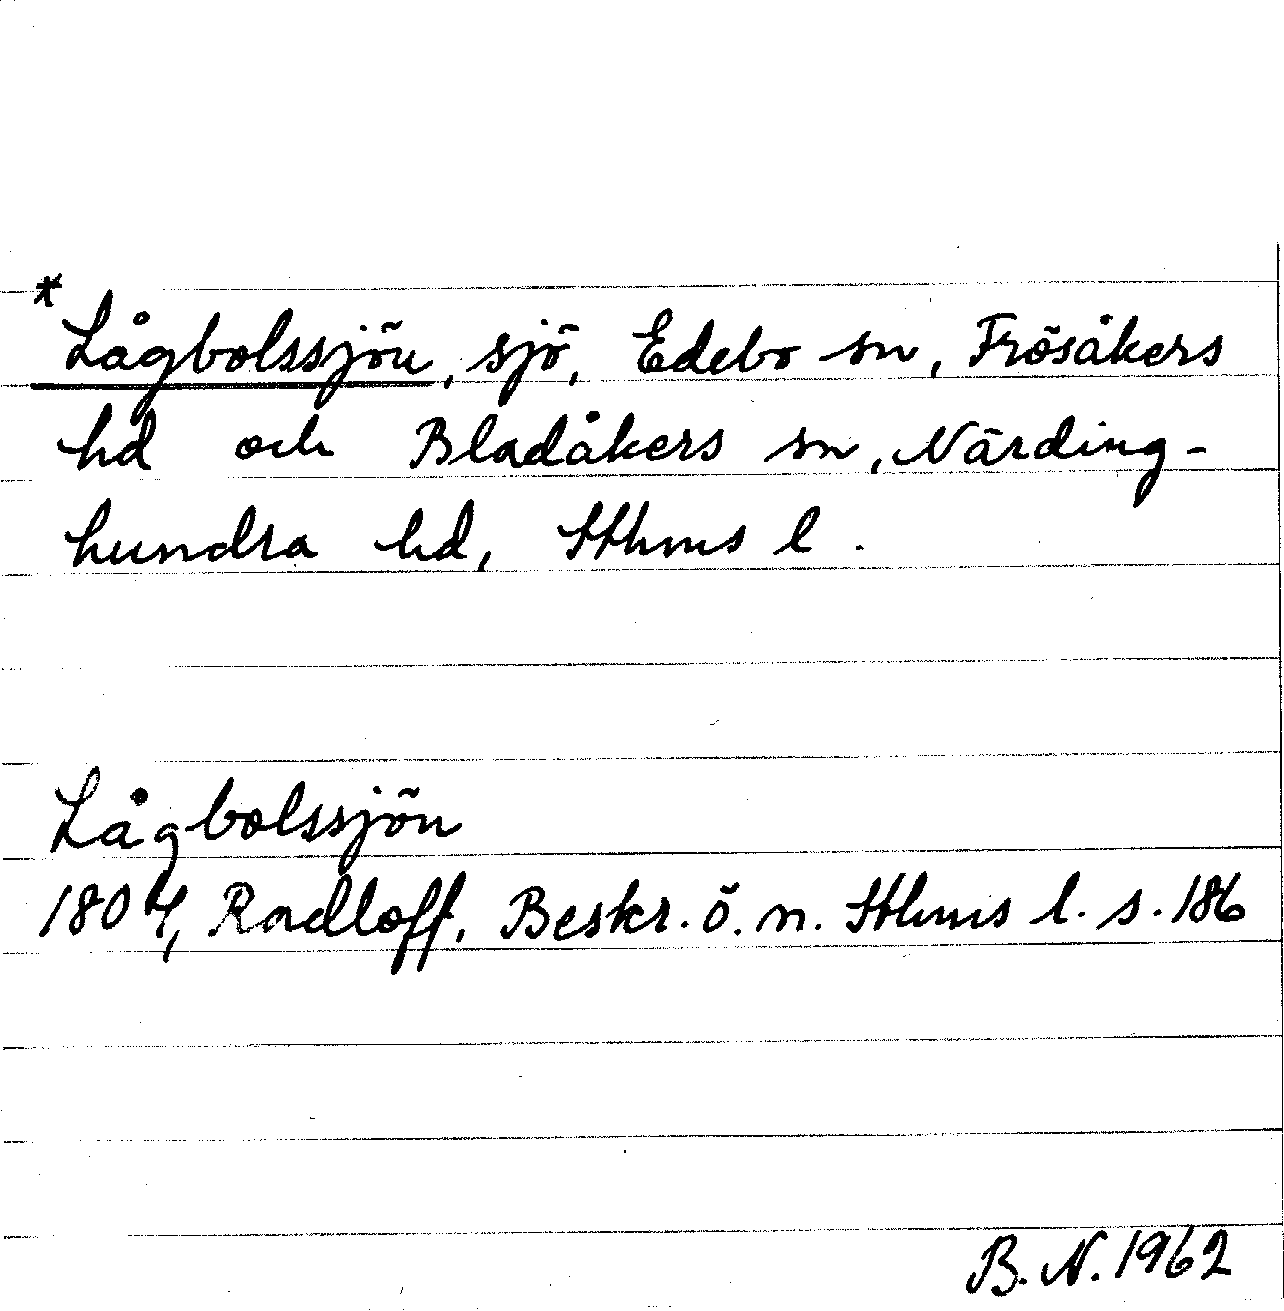 *Lågbolssjön, sjö, Edebo sn, Frösåkers
hd och Bladåkers sn, Närding-
hundra hd, Sthms l.
Lågbolssjön
1804, Radloff, Beskr. ö. n. Sthms l. s. 186
B. N. 1962